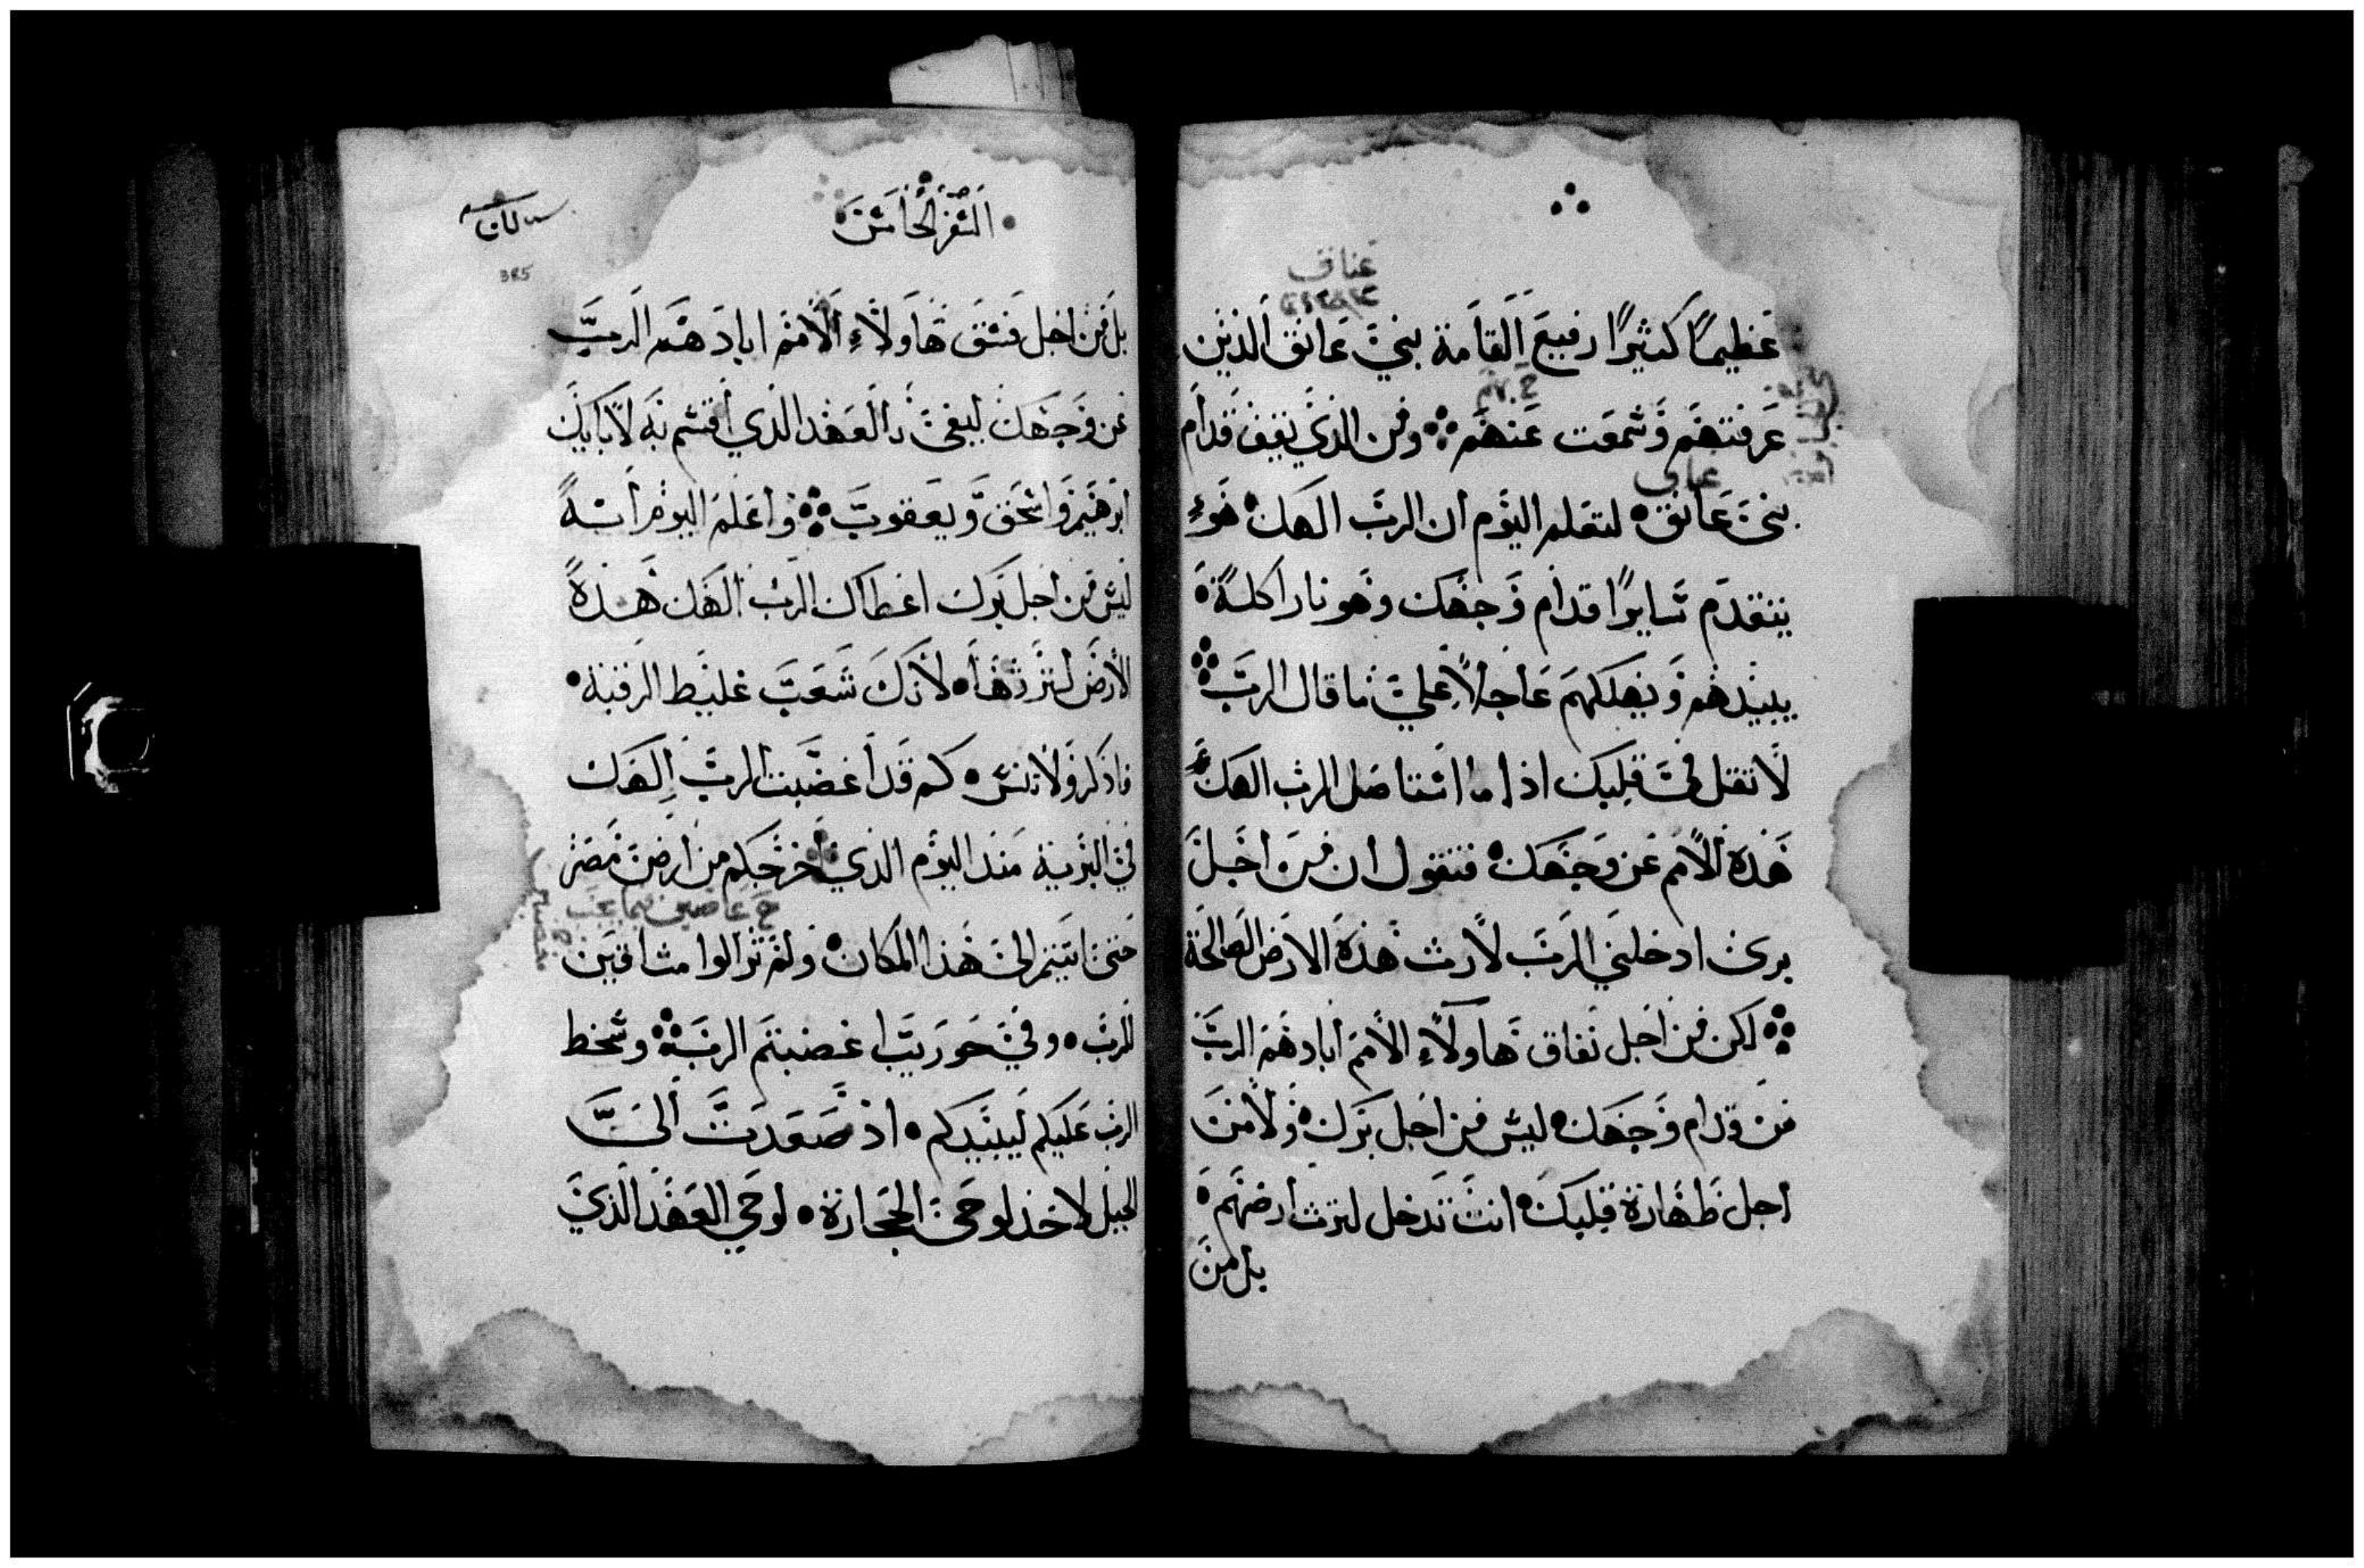 عناق
عظيمًا كثيرًا رفيع القامة بني عانق الذين
عرفتهم وسمعت عنهم ومن الذي يقف قدام
بني عانق لتعلم اليوم ان الرب الهك هوء
يتقدم سايرًا قدام وجهك وهو نارا كلة
يبيدهم ويهلكهم عاجلاً علي ما قال الرب
لا تقل في قلبك اذا ما استاصل الرب الهك
هذه الامم عن وجهك فتقول ان من اجل
بري ادخلني الرب لارث هذه الارض الصالحة
لكن من اجل نفاق هاولاء الامم ابادهم الرب
من قدام وجهك ليس من اجل برك ولا من
اجل طهارة قلبك انت تدخل لترث ارضهم
بل من
السفر الخامس
385
بل من اجل فسق هاولاء الامم ابادهم الرب
عن وجهك ليفي بالعهد الذي اقسم به لابايك
ابرهيم واسحق ويعقوب واعلم اليوم انه
ليس من اجل برك اعطاك الرب الهك هذه
الارض لترثها لانك شعب غليظ الرقبة
فاذكر ولا تنس كم قد اغضبت الرب الهك
في البرية منذ اليوم الذي اخرجكم من ارض مصر
عاصين فيما يجب
حتي اتيتم الي هذا المكان ولم تزالوا مشاقين
للرب وفي حوريب اغضبتم الرب وسخط
الرب عليكم ليبيدكم اذ صعدت الي
الجبل لاخذ لوحي الحجارة لوحي العهد الذي